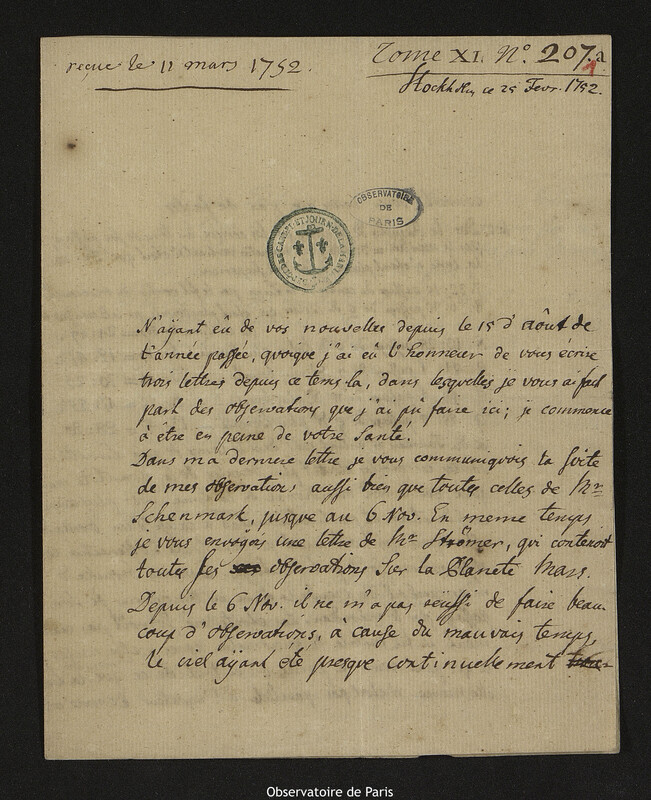 reçue le 11 mars 1752.
Tome XI. N° 207.a
1
Stockholm ce 25 Fevr. 1752.
OBSERVATOIRE
DE
PARIS
N'aÿant eû de vos nouvelles depuis le 15 d'Aôut de
l'année passée, quoique j'ai eû l'honneur de vous écrire
trois lettres depuis ce tems-la, dans lesquelles je vous ai fait
part des observations que j'ai pû faire ici; je commence
à être en peine de votre Santé.
Dans ma derniere lettre je vous communiquois la suite
de mes observations aussi bien que toutes celles de Mr.
Schenmark, jusque au 6 Nov. En meme temps
je vous envoyois une lettre de Mr Strömer, qui contenoit
toutes ses observations Sur la Planete Mars.
Depuis le 6 Nov. il ne m'a pas reüssi de faire beau
coup d'observations, à cause du mauvais temps,
le ciel aÿant été presque continuellement
Observatoire de Paris